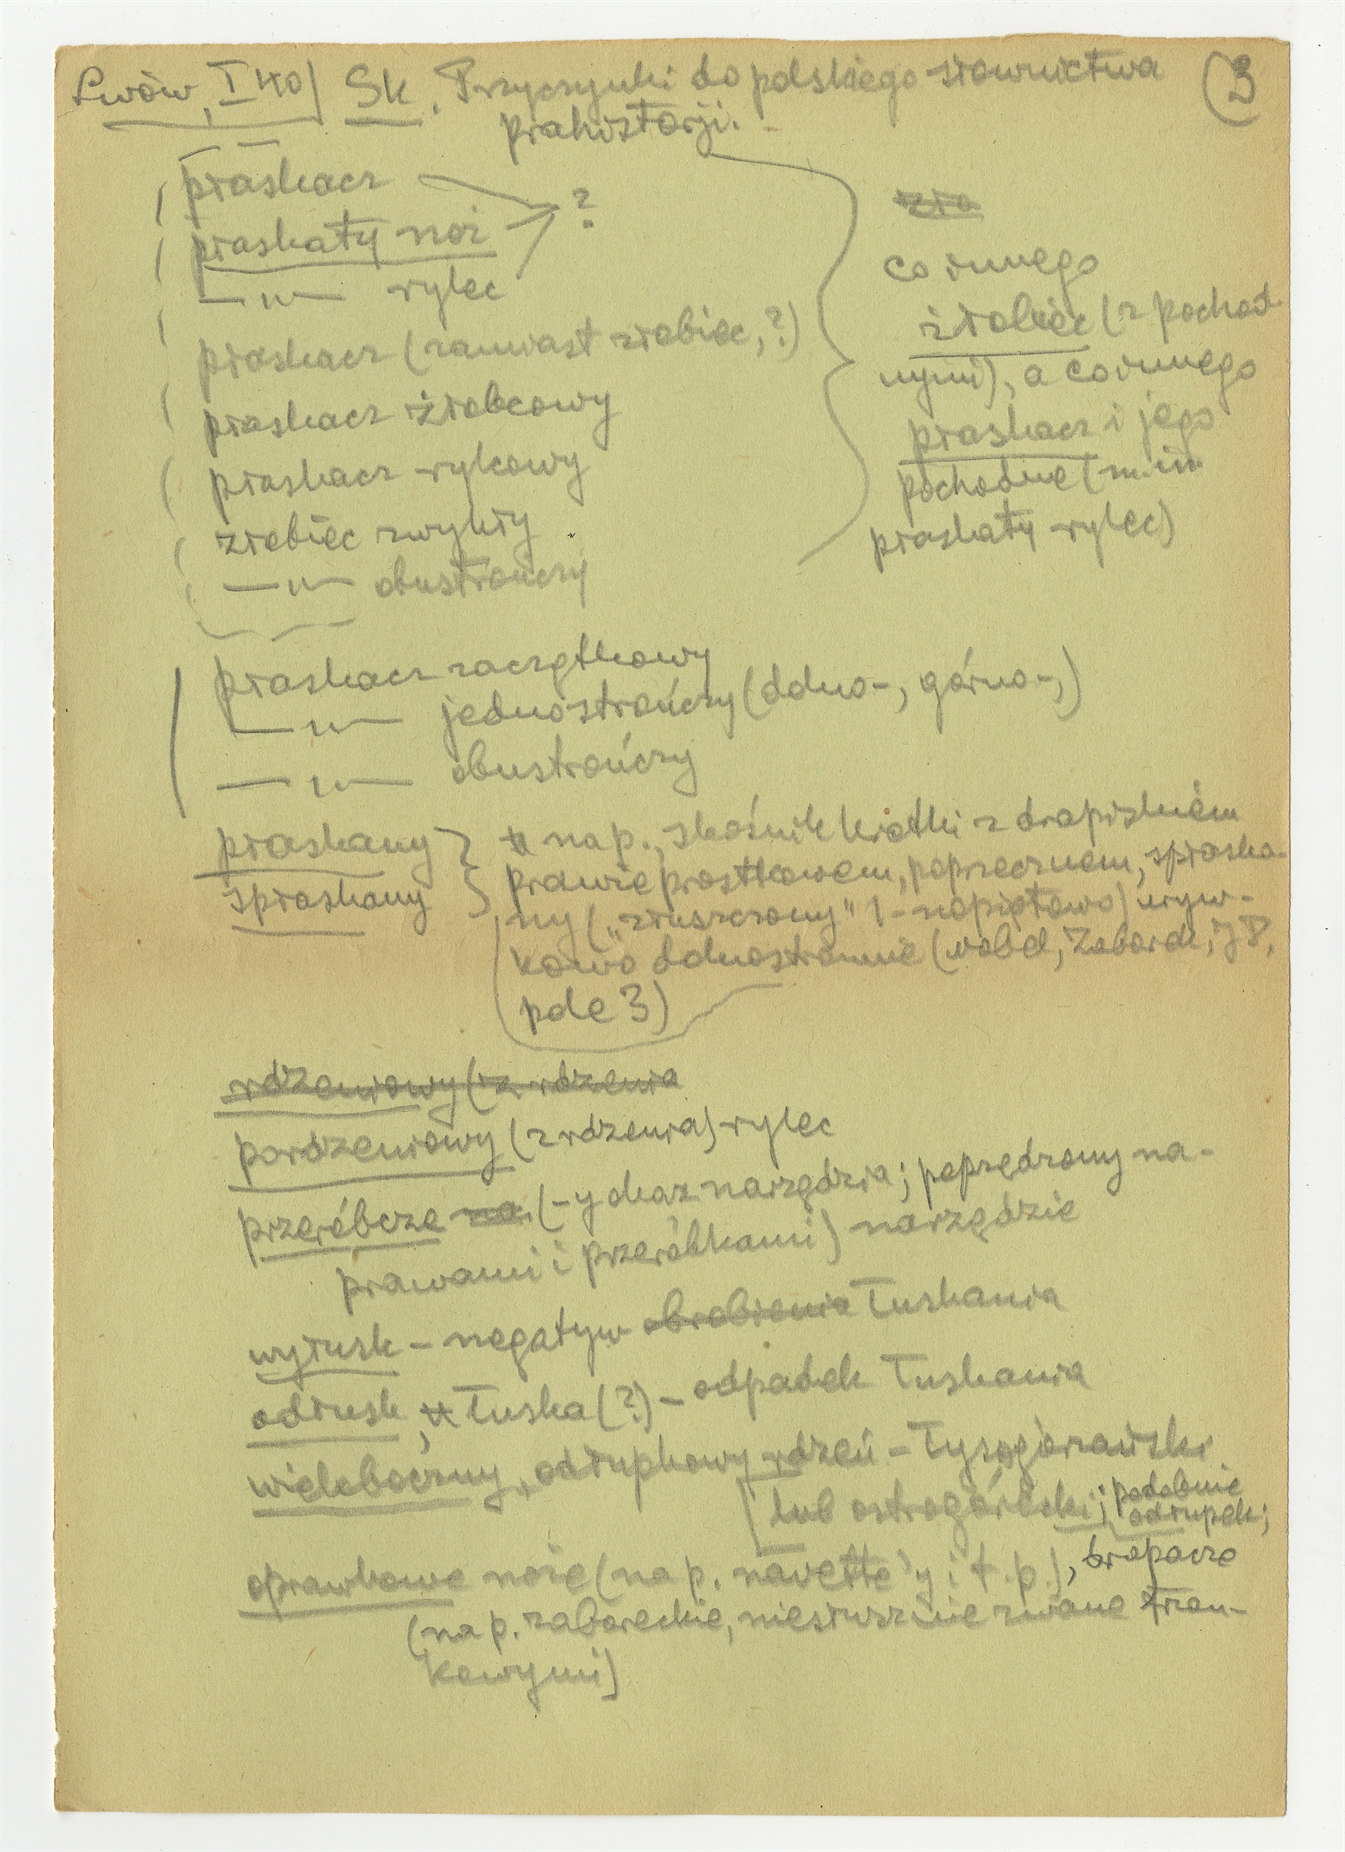 Lwów, I 40) Sk. Przyczynki do polskiego słownictwa (3
prahistorji.
płaskacz
płaskaty nóż ?
—„— rylec
płaskacz (zamiast żłobiec, ?)
płaskacz żłobcowy
płaskacz rylcowy
żłobiec zwykły
—„— obustrończy
żło
co innego
żłobiec (z pochod
nymi), a co innego
płaskacz i jego
pochodne (m. in.
płaskaty rylec)
płaskacz zaczątkowy
—„— jednostrończy (dolno-, górno-,)
—„— obustrończy
płaskany
spłaskany
nap. skośnik krótki z drapiskiem
prawie prostkowem, poprzecznem, spłaska-
ny („złuszczony" 1-napiętowo) uryw-
kowo dolnostronnie (wobel, Zaborek, JP,
pole 3)
rdzeniowy (z rdzenia
pordzeniowy (z rdzenia) rylec
przeróbcze na (-y okaz narzędzia; poprzedzony na-
prawami i przeróbkami) narzędzie
wyłusk – negatyw obrobienia łuskania
odłusk, łuska (?) – odpadek łuskania
wieloboczny, odłupkowy rdzeń – łysogórański
lub ostrogórecki; podobnie
odłupek;
oprawkowe noże (nap. navette'y i t. p.), drapacze
(nap. zaboreckie, niesłusznie zwane trzon-
kowymi)